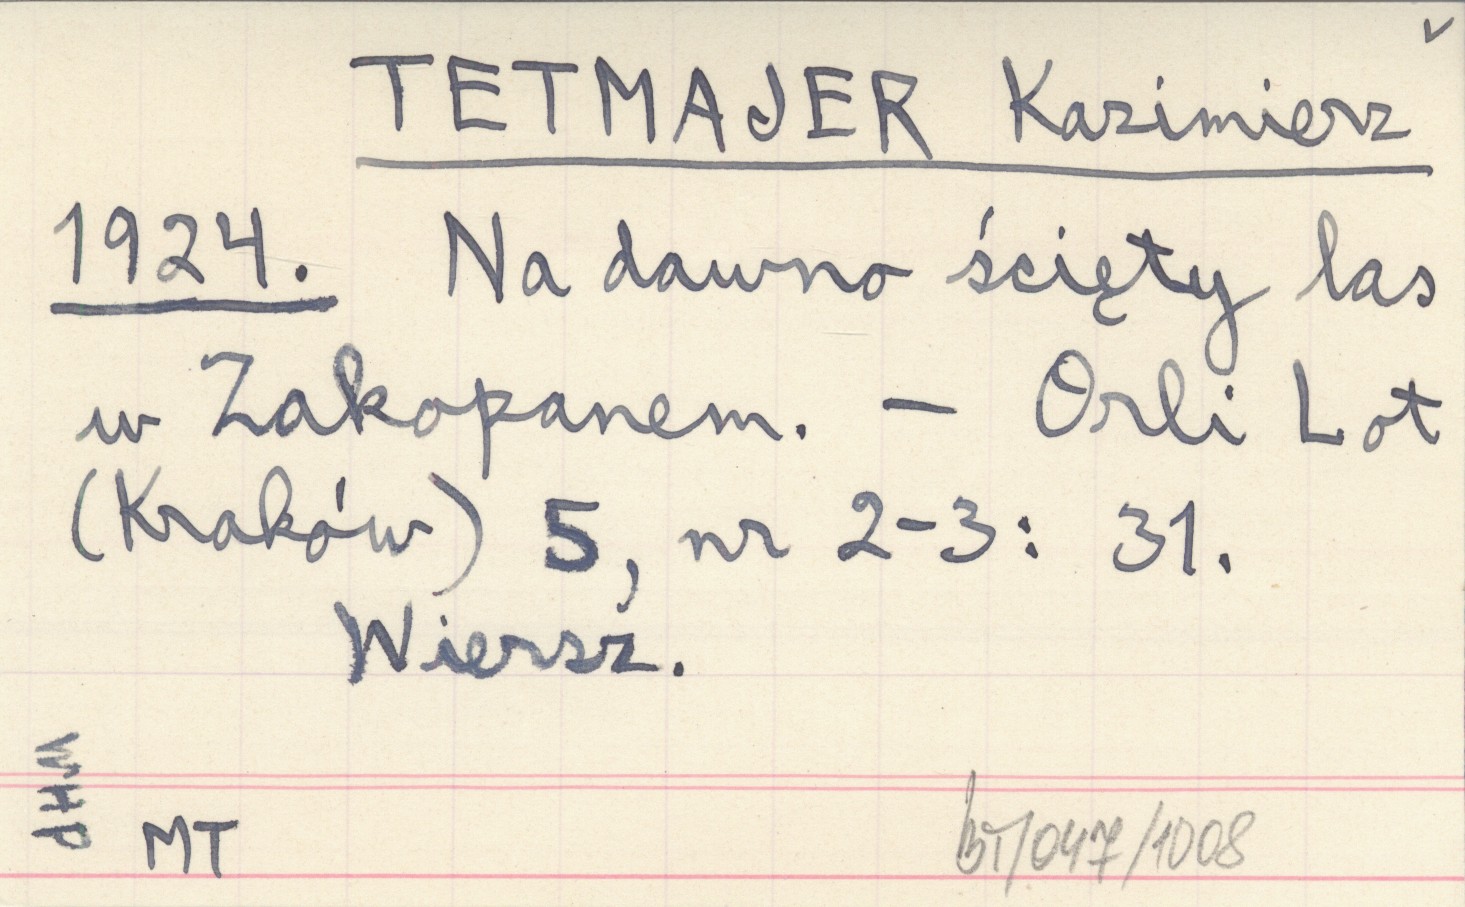 TETMAJER Kazimierz
1924. Na dawno ścięty las
w Zakopanem. – Orli Lot
(Kraków) 5, nr 2-3: 31.
Wiersz.
WHP
MT
BT/047/1008